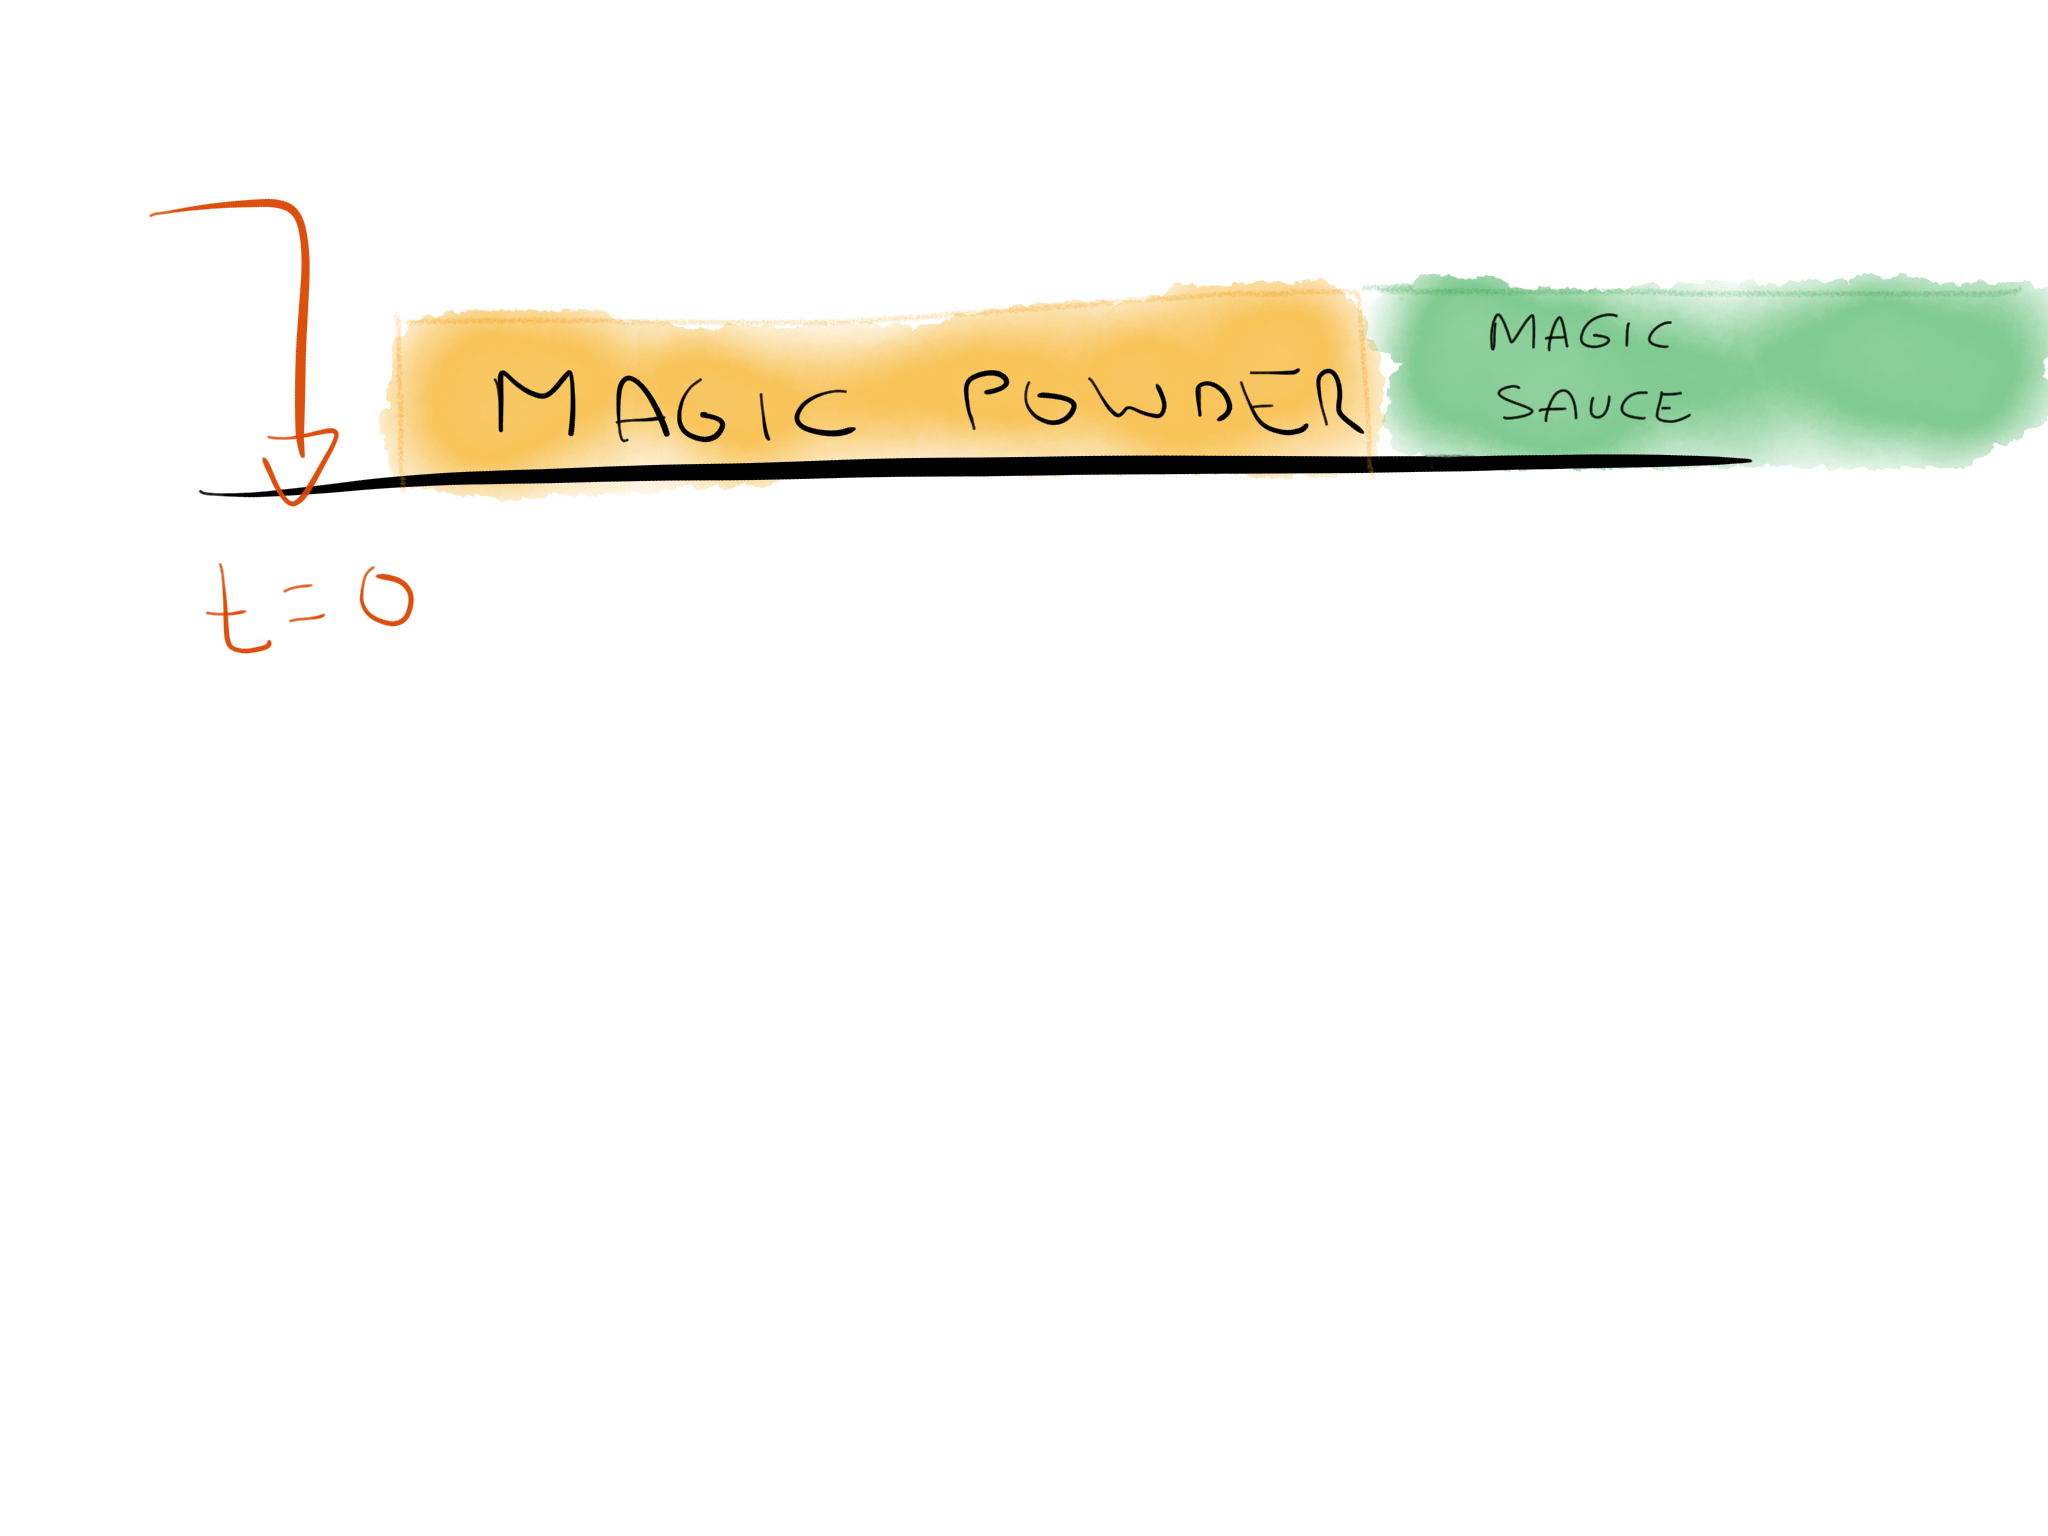 MAGIC POWDER
MAGIC
SAUCE
t=0